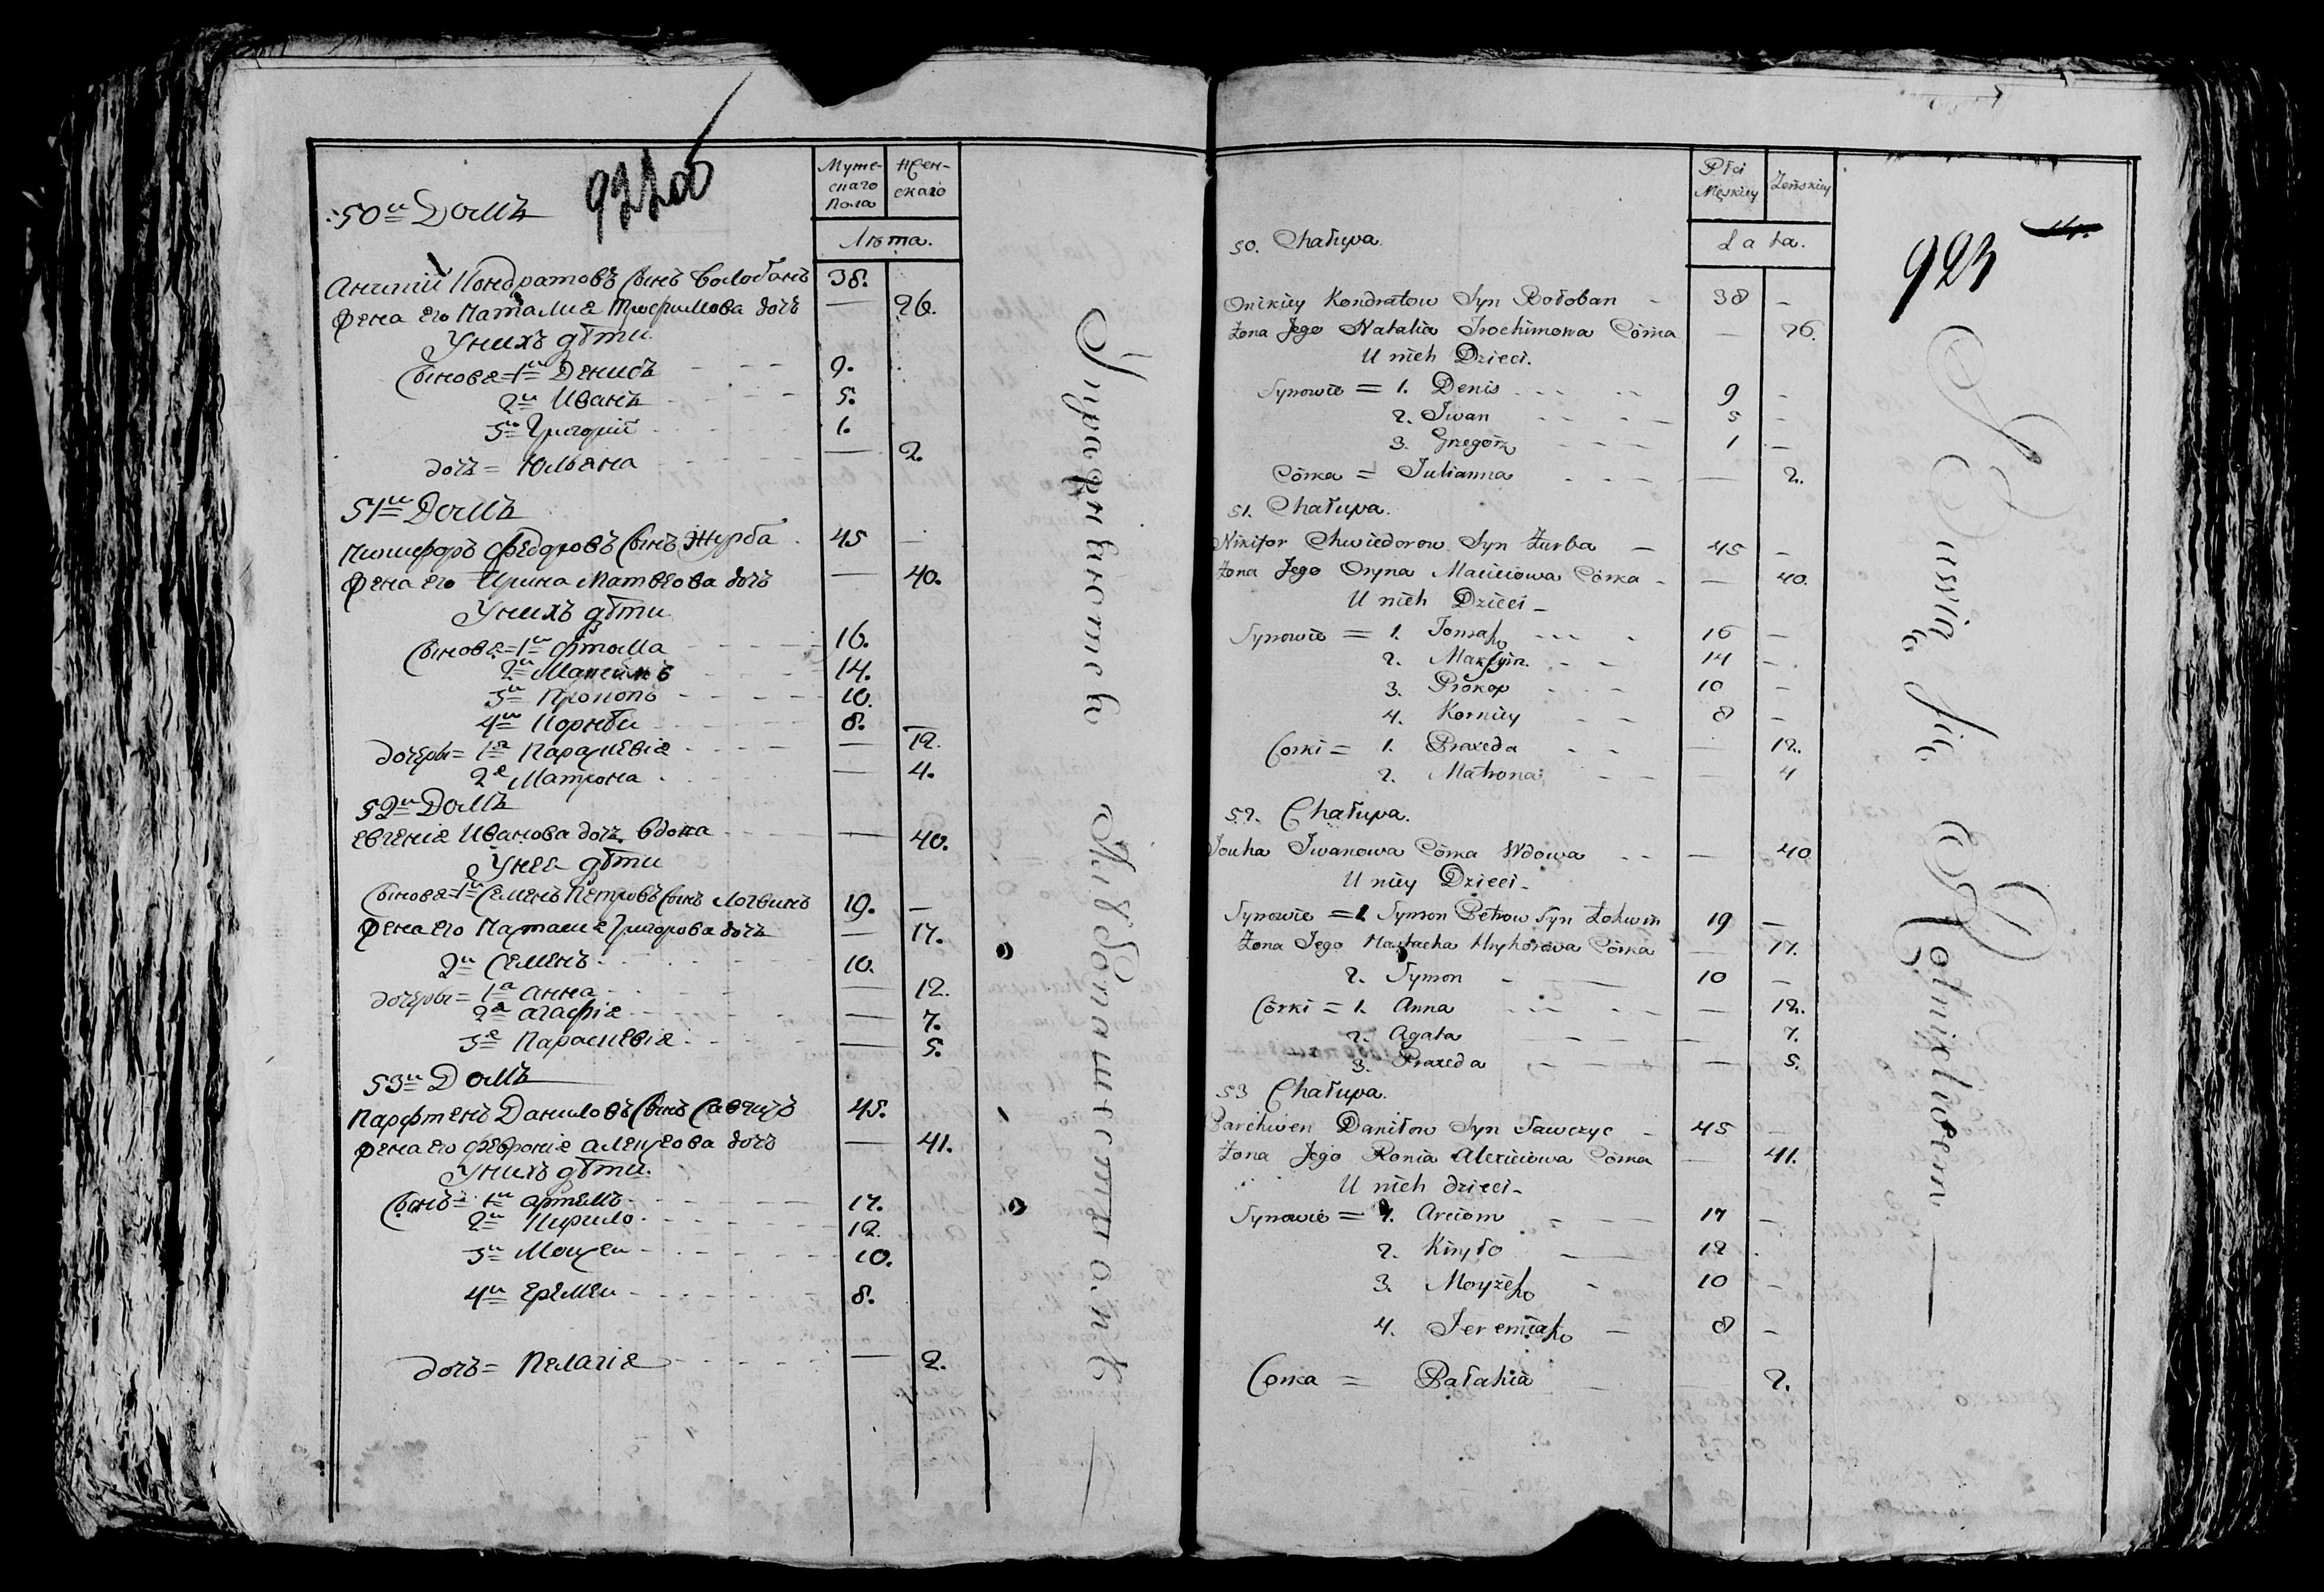 922 об
50й Домъ
Мужескаго Пола
Женскаго
Лѣта.
Аникий Кондратовъ Сынъ Болобанъ 38.
Жена его Наталия Трофимова дочъ — 26.
У нихъ дѣти
Сыновя = 1й Денисъ 9.
2й Иванъ 5.
3й Григорий 1.
дочъ = Юлияна — 2.
51й Домъ
Никифоръ Федоровъ Сынъ Журба 45 —
Жена его Ирина Матвеова дочъ — 40.
У нихъ дѣти
Сыновя = 1й Фтома 16.
2й 14.
3й Прокопъ 10.
4й Корнѣи 8.
дочеры = 1я Параскевия — 12.
2я Матрона — 4.
52й Домъ
Евгения Иванова дочъ вдова — 40.
У нея дѣти
Сыновя = 1й Семенъ Петровъ Сынъ Логвинъ 19. —
Жена его Григорова дочъ — 17.
2й Семенъ 10.
дочеры = 1я Анна — 12.
2я Агафия — 7.
3я Параскевия — 5.
53й Домъ
Парфтенъ Даниловъ Сынъ Савчицъ 45.
Жена его Феврония Алексеова дочъ — 41.
У нихъ дѣти.
Сынъ = 1й Артемъ 17.
2й Кирило 12.
3й 10.
4й Еремеи 8.
дочъ = Пелагия — 2.
923
Płci Męskiey
Żeńskiey
Lata.
50. Chałupa.
Onikiey Kondratow Syn Bołoban - 38 -
Żona Jego Natalia Trochimowa Córka — 26.
U nich Dzieci.
Synowie = 1. Denis 9 -
2. Iwan 5 -
3. Grzegorz 1 -
Córka = Julianna — 2.
51. Chałupa.
Nikifor Chwiedorow Syn Żurba — 45 -
Żona Jego Oryna Macieiowa Córka - — 40.
U nich Dzieci -
Synowie = 1. Tomasz 16 -
2. Maxym 14 -
3. Prokop 10 -
4. Korniey 8 -
Corki = 1. Praxeda — 12.
2. Matrona — 4
52. Chałupa.
Jouha Iwanowa Córka Wdowa — 40
U niey Dzieci -
Synowie = 1 Symon Petrow Syn Łohwin 19 -
Żona Jego Nastacha Hryhorowa Córka — 17.
2. Symon 10 -
Córki = 1. Anna — 12.
2. Agata — 7.
3. Praxeda — 5.
53 Chałupa.
Parchwen Daniłow Syn Sawczyc - 45 -
Żona Jego Ronia Alexieiowa Córka — 41.
U nich dzieci -
Synowie = 1. Arciom 17 -
2. Kiryło 12
3. Moyżesz 10 -
4. Jeremiasz 8 -
Corka = Pałahia 2.